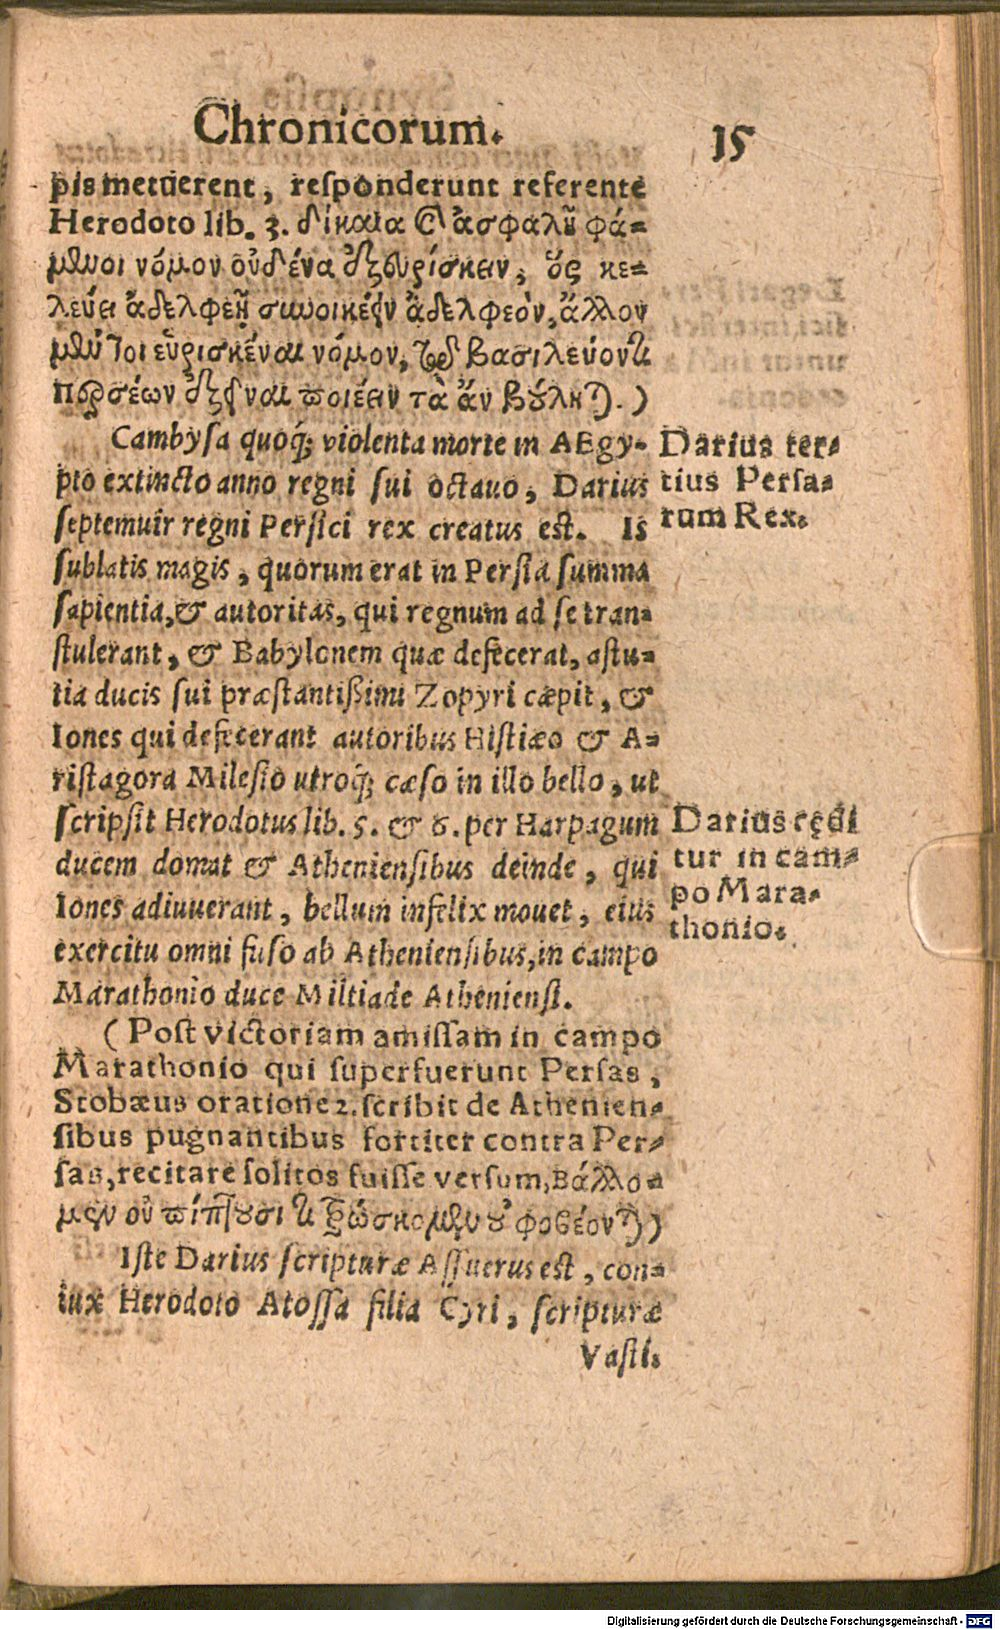 Chronicorum.
15
pis metuerent, responderunt referente
Herodoto lib. 3. δίκαια & ἀσφαλῆ φά-
μενοι νόμον οὐδένα ἐξευρίσκειν, ὅς κε-
λεύει ἀδελφεῇ συνοικέειν ἀδελφεὸν, ἄλλον
μέντοι εὑρισκέναι νόμον, τῷ βασιλεύοντι
περσέων ἐξεῖναι ποιέειν τὰ ἂν βούληται.)
Cambysa quoq; violenta morte in AEgy-
pto extincto anno regni sui octauo, Darius
septemuir regni Persici rex creatus est. Is
sublatis magis, quorum erat in Persia summa
sapientia, & autoritas, qui regnum ad se tran-
stulerant, & Babylonem quæ defecerat, astu-
tia ducis sui præstantißimi Zopyri cæpit, &
Iones qui defecerant autoribus Histiæo & A-
ristagora Milesio utroq; cæso in illo bello, ut
scripsit Herodotus lib. 5. & 6. per Harpagum
ducem domat & Atheniensibus deinde, qui
Iones adiuuerant, bellum infelix mouet, eius
exercitu omni fuso ab Atheniensibus, in campo
Marathonio duce Miltiade Atheniensi.
(Post victoriam amissam in campo
Marathonio qui superfuerunt Persas,
Stobæus oratione 2. scribit de Athenien-
sibus pugnantibus fortiter contra Per-
sas, recitare solitos fuisse versum, Βάλλο-
μεν οὐ πίπτουσι τιτρώσκομεν οὐ φοβέονται)
Iste Darius scripturæ Assuerus est, con-
iux Herodoto Atossa filia Cyri, scripturæ
Vasti.
Darius ter-
tius Persa-
rum Rex.
Darius cędi
tur in cam-
po Mara-
thonio.
Digitalisierung gefördert durch die Deutsche Forschungsgemeinschaft - DFG